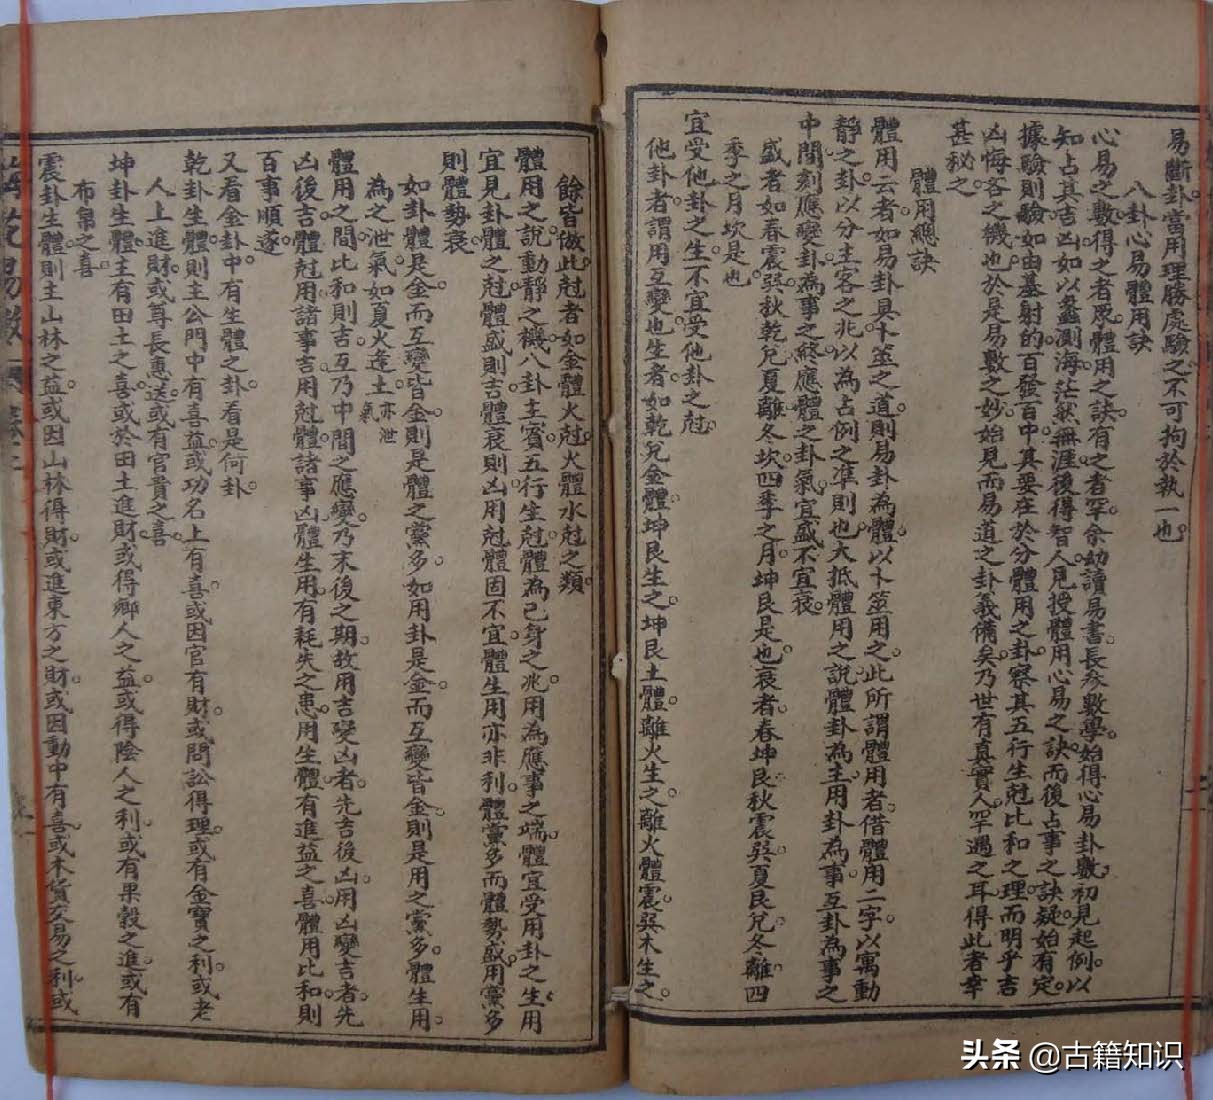 易斷卦當用理勝處驗之不可拘於執一也
八卦心易體用訣
心易之數得之者衆體用之訣有之者罕余幼讀易書長參數學始得心易卦數初見起例以
知占其吉凶如以蠡測海茫然無涯後得智人見授體用心易之訣而後占事之訣疑始有定
據驗則驗如由基射的百發百中其要在於分體用之卦察其五行生尅比和之理而明乎吉
凶悔吝之機也於是易數之妙始見而易道之卦義備矣乃世有真實人罕遇之耳得此者幸
甚秘之
體用總訣
體用云者如易卦具卜筮之道則易卦為體以卜筮用之此所謂體用者借體用二字以寓動
靜之卦以分主客之兆以為占例之準則也大抵體用之說體卦為主用卦為事互卦為事之
中間刻應變卦為事之終應體之卦氣宜盛不宜衰
盛者如春震巽秋乾兌夏離冬坎四季之月坤艮是也衰者春坤艮秋震巽夏艮兌冬離四
季之月坎是也
宜受他卦之生不宜受他卦之尅
他卦者謂用互變也生者如乾兌金體坤艮生之坤艮土體離火生之離火體震巽木生之
餘皆倣此尅者如金體火尅火體水尅之類
體用之說動靜之機八卦主賓五行生尅體為己身之兆用為應事之端體宜受用卦之生用
宜見卦體之尅體盛則吉體衰則凶用尅體固不宜體生用亦非利體黨多而體勢盛用黨多
則體勢衰
如卦體是金而互變皆金則是體之黨多如用卦是金而互變皆金則是用之黨多體生用
為之泄氣如夏火逢土亦泄氣
體用之間比和則吉互乃中間之應變乃末後之期故用吉變凶者先吉後凶用凶變吉者先
凶後吉體尅用諸事吉用尅體諸事凶體生用有耗失之患用生體有進益之喜體用比和則
百事順遂
又看全卦中有生體之卦看是何卦
乾卦生體則主公門中有喜益或功名上有喜或因官有財或問訟得理或有金寶之利或老
人上進財或尊長惠送或有官貴之喜
坤卦生體主有田土之喜或於田土進財或得鄉人之益或得陰人之利或有果穀之進或有
布帛之喜
震卦生體則主山林之益或因山林得財或進東方之財或因動中有喜或木貨交易之利或
头条 @古籍知识